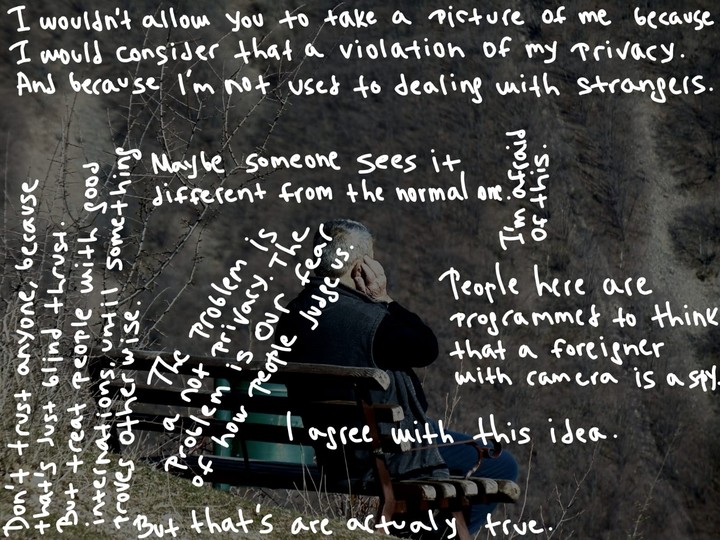 I wouldn't allow you to take a picture of me because
I would consider that a violation of my privacy.
And because I'm not used to dealing with strangers.
Maybe someone sees it
different from the normal one.
I'm afraid
of this.
Don't trust anyone, because
that's just blind thrust.
But treat people with good
internations, until something
proves otherwise.
The problem is
a not privacy. The
Problem is our fear
of how people judge us.
People here are
programmed to think
that a foreigner
with camera is a spy.
I agree with this idea.
But that's are actualy true.